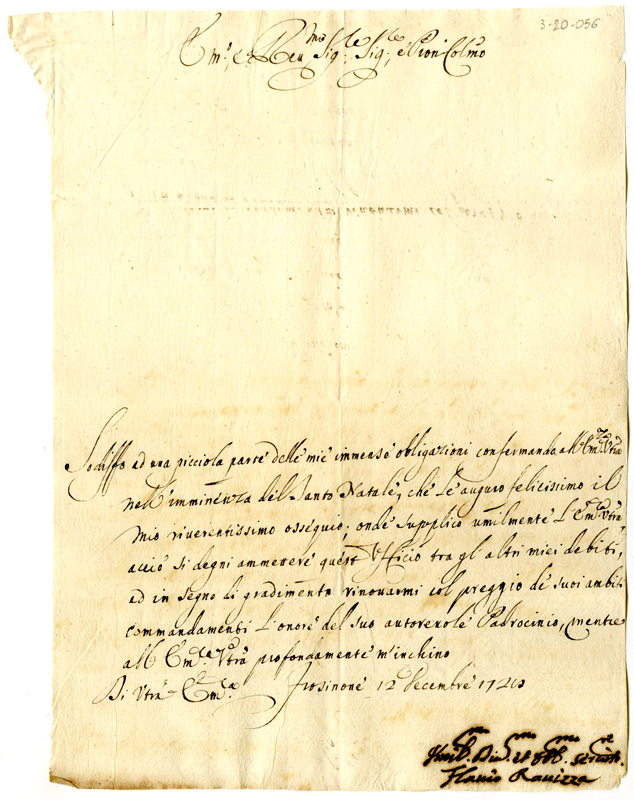 3-20-056
Em.o, e Reu.mo Sig.re Sig.re, e Pron Colmo
Sodisfo ad una picciola parte delle mie immense obligazioni confermando all'Em.za Vtra
nell'imminenza del Santo Natale, che le auguro felicissimo il
mio riverentissimo ossequio; onde supplico umilmente l'Em.za Vtra,
acciò si degni ammettere quest'Ufficio tra gl'altri miei debiti,
ed in segno di gradimento rinovarmi col preggio de suoi ambiti
commandamenti l'onore del suo autorevole Padrocinio, mentre
all'Em.za Vtra profondamente m'inchino
Di Vtra Em.za Frosinone 12 Decembre
Humil. Diu. et Obb. Seruit.re
Flavio Rauizza